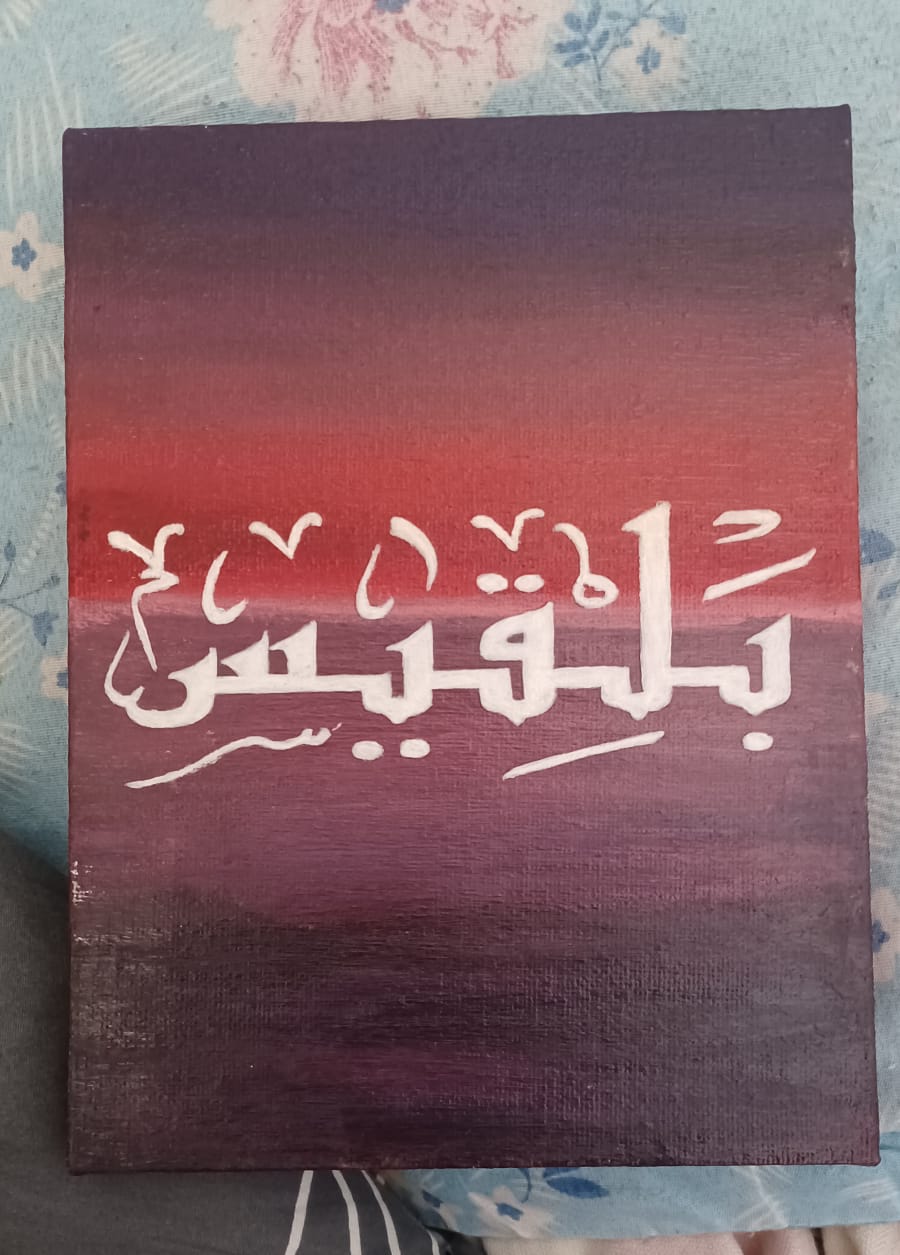 بَلْقِيس